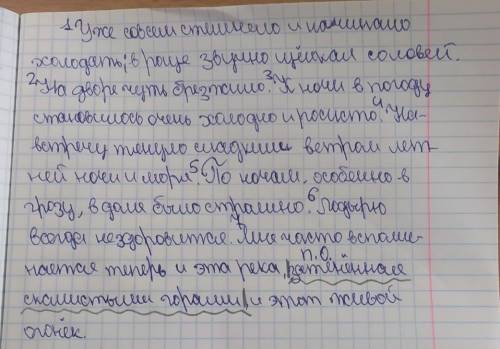 1 Уже совсем стемнело и начинало
холодать; в роще звучно щёлкал соловей.
2 На дворе чуть брезжило. 3 К ночи в погоду
становилось очень холодно и росисто. 4 На-
встречу тянуло сладким ветром лет-
ней ночи и моря. 5 По ночам, особенно в
грозу, в доме было страшно. 6 Лодырю
всегда нездоровится. 7 Мне часто вспоми-
п.о.
нается теперь и эта река, затенённая
скалистыми горами, и этот живой
огонёк.